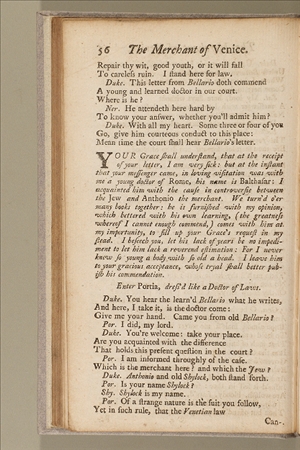 56 The Merchant of Venice.
Repair thy wit, good youth, or it will fall
To careless ruin. I stand here for law.
Duke. This letter from Bellario doth commend
A young and learned doctor in our court.
Where is he?
Ner. He attendeth here hard by
To know your answer, whether you'll admit him?
Duke. With all my heart. Some three or four of you
Go, give him courteous conduct to this place:
Mean time the court shall hear Bellario's letter.
YOUR Grace shall understand, that at the receipt
of your letter, I am very sick: but at the instant
that your messenger came, in loving visitation was with
me a young doctor of Rome, his name is Balthasar: I
acquainted him with the cause in controversie between
the Jew and Anthonio the merchant. We turn'd o'er
many books together: he is furnished with my opinion,
which bettered with his own learning, (the greatness
whereof I cannot enough commend,) comes with him at
my importunity, to fill up your Grace's request in my
stead. I beseech you, let his lack of years be no impedi-
ment to let him lack a reverend estimation: For I never
knew so young a body with so old a head. I leave him
to your gracious acceptance, whose tryal shall better pub-
lish his commendation.
Enter Portia, dress'd like a Doctor of Laws.
Duke. You hear the learn'd Bellario what he writes,
And here, I take it, is the doctor come:
Give me your hand. Came you from old Bellario?
Por. I did, my lord.
Duke. You're welcome: take your place.
Are you acquainted with the difference
That holds this present question in the court?
Por. I am informed throughly of the case.
Which is the merchant here? and which the Jew?
Duke. Anthonio and old Shylock, both stand forth.
Por. Is your name Shylock?
Shy. Shylock is my name.
Por. Of a strange nature is the suit you follow,
Yet in such rule, that the Venetian law
Can-